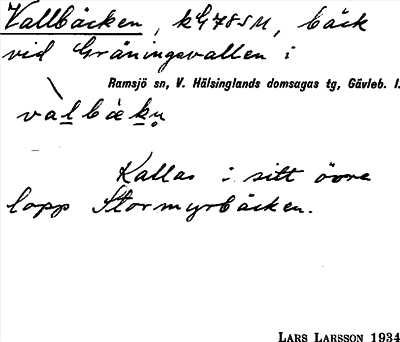 Vallbäcken, kG785M, bäck
vid Gräningsvallen i
Ramsjö sn, V. Hälsinglands domsagas tg, Gävleb. l.
Kallas i sitt övre
lopp Stormyrbäcken.
LARS LARSSON 1934